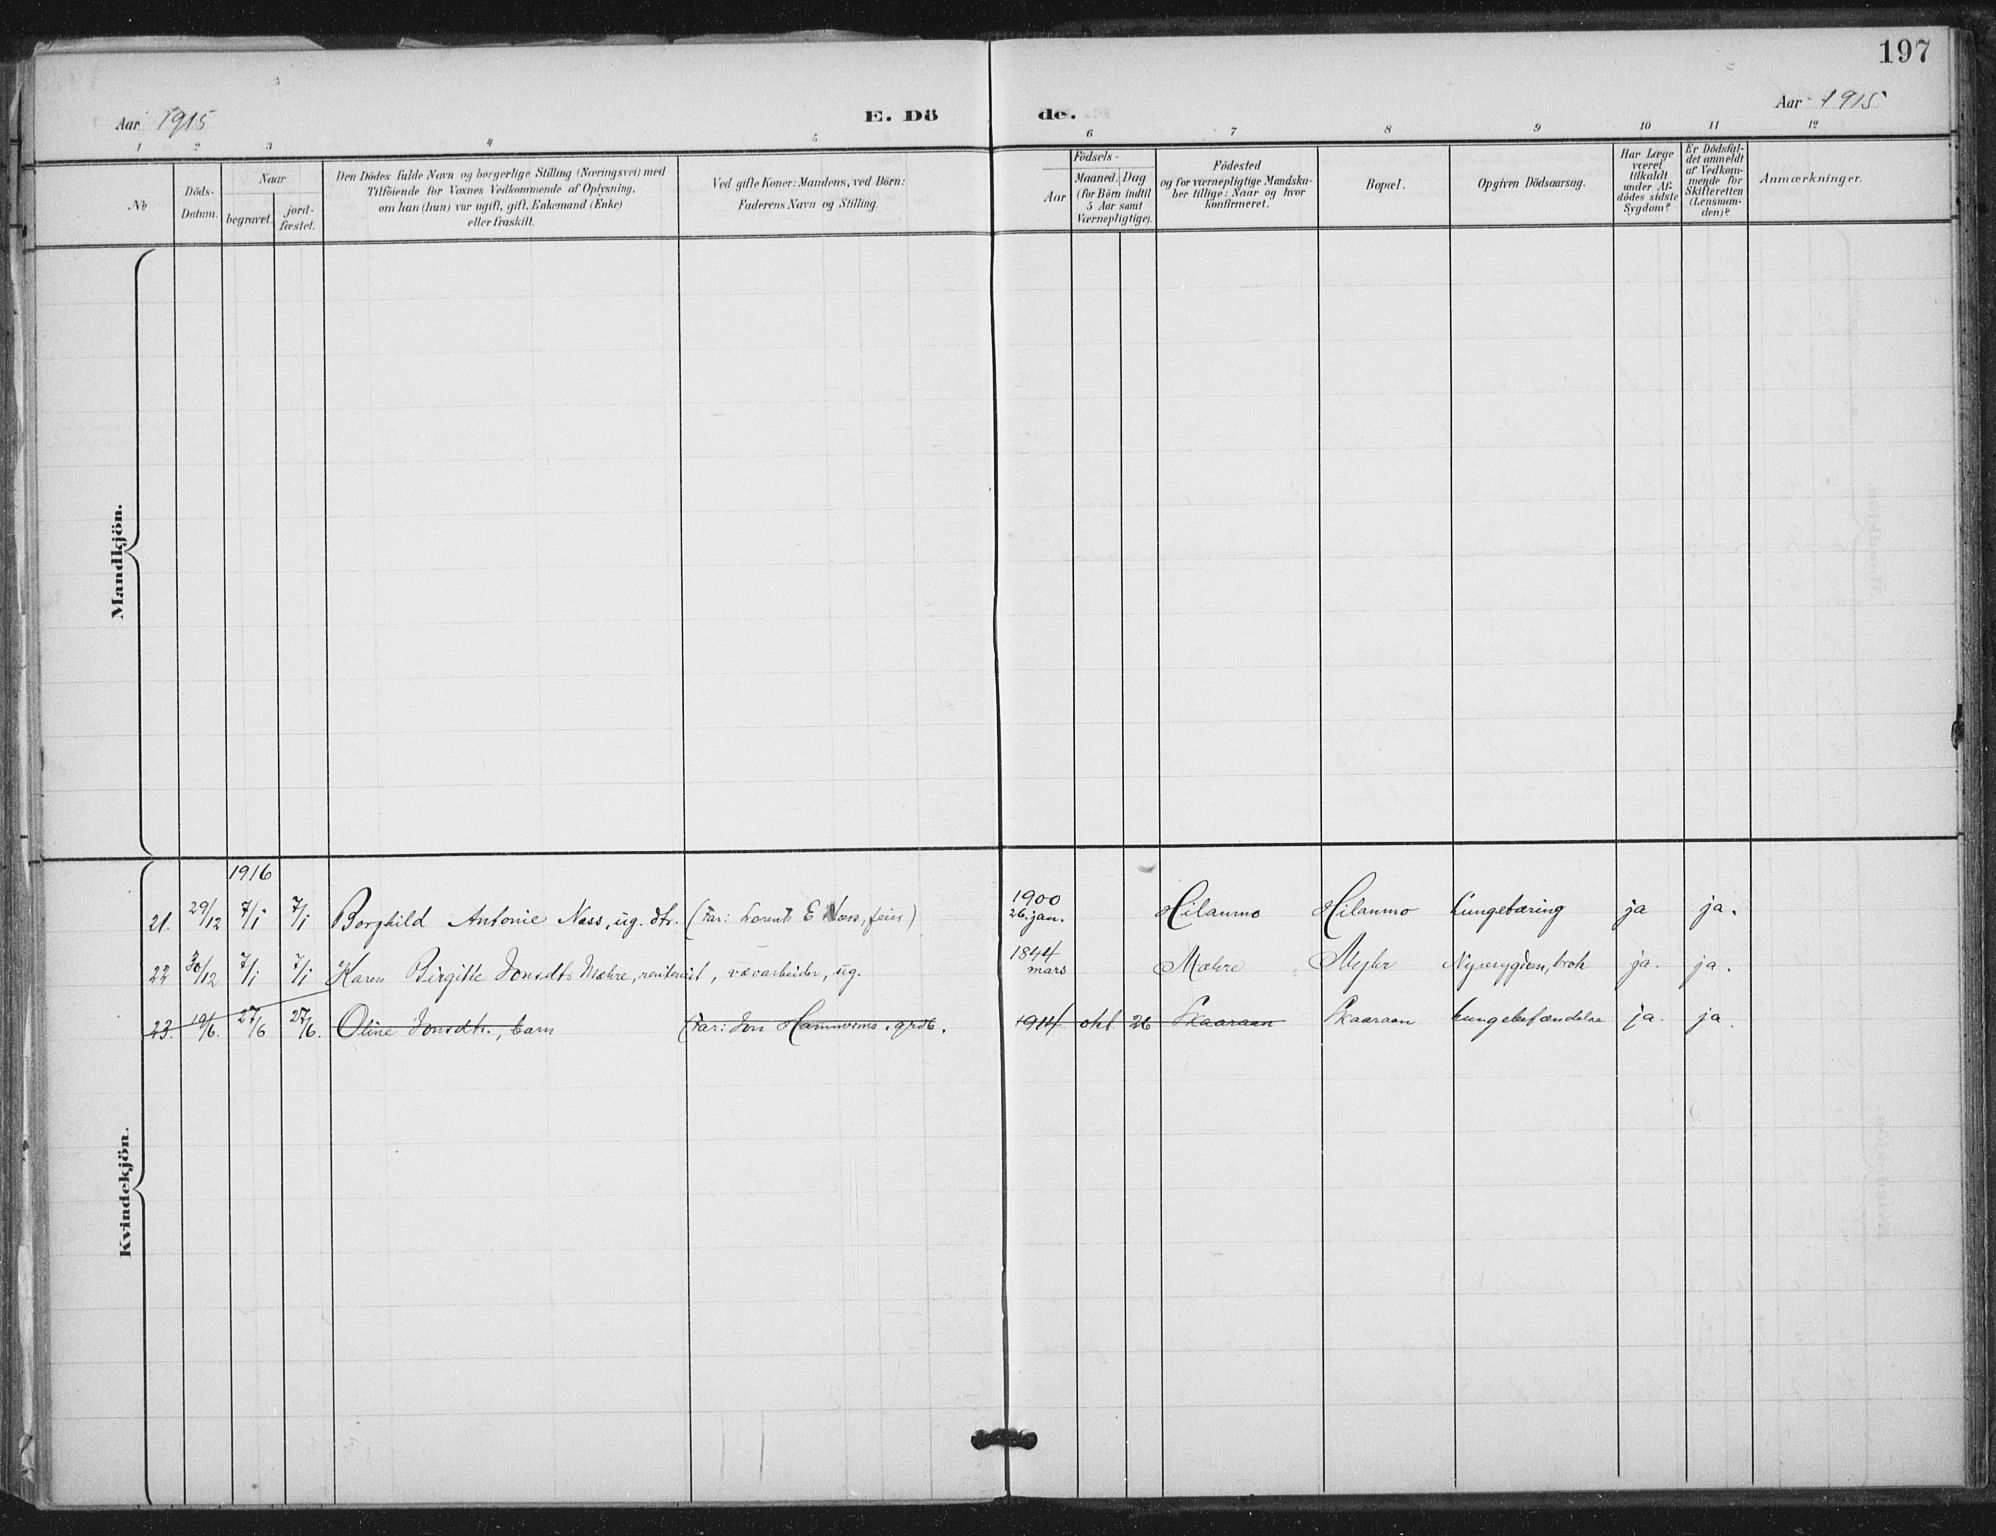 197
Aar 1915
E. Dö
de.
Aar 1915
1 2 3 4 5 6 7 8 9 10 11 12
№
Döds-
Datum.
Naar
begravet.
jord-
fæstet.
Den Dödes fulde Navn og borgerlige Stilling (Næringsvei) med
Tilföiende for Voxnes Vedkommende af Oplysning,
om han (hun) var ugift, gift, Enkemand (Enke)
eller fraskilt.
Ved gifte Koner: Mandens, ved Börn:
Faderens Navn og Stilling.
Födsels-
Aar
Maaned. Dag
(for Börn indtil
5 Aar samt
Værnepligtige).
Födested
og for værnepligtige Mandska-
ber tillige: Naar og hvor
konfirmeret.
Bopæl.
Opgiven Dödsaarsag.
Har Læge
været
tilkaldt
under Af-
dödes sidste
Sygdom?
Er Dödsfal-
det anmeldt
af Vedkom-
mende for
Skifteretten
(Lensman-
den)?
Anmærkninger.
Mandkjön.
Kvindekjön.
1916
21. 29/12 7/1 7/1 Borghild Antonie Næss, ug. dtr. (Far: Lorents E Næss, feier) 1900 26. jan. Hilanmo Hilanmo Lungetæring ja ja.
22 30/12 7/1 7/1 Karen Birgitte Jonsdtr Mæhre, rentenist, vævarbeider, ug. 1844 mars Mæhre ja. ja.
23. 19/6. 27/6 27/6. Oline Jonsdtr., barn (Far: Jon Hammermo, grdb. 1914 okt 26 Skaaraan Skaaraan Lungebetændelse ja. ja.